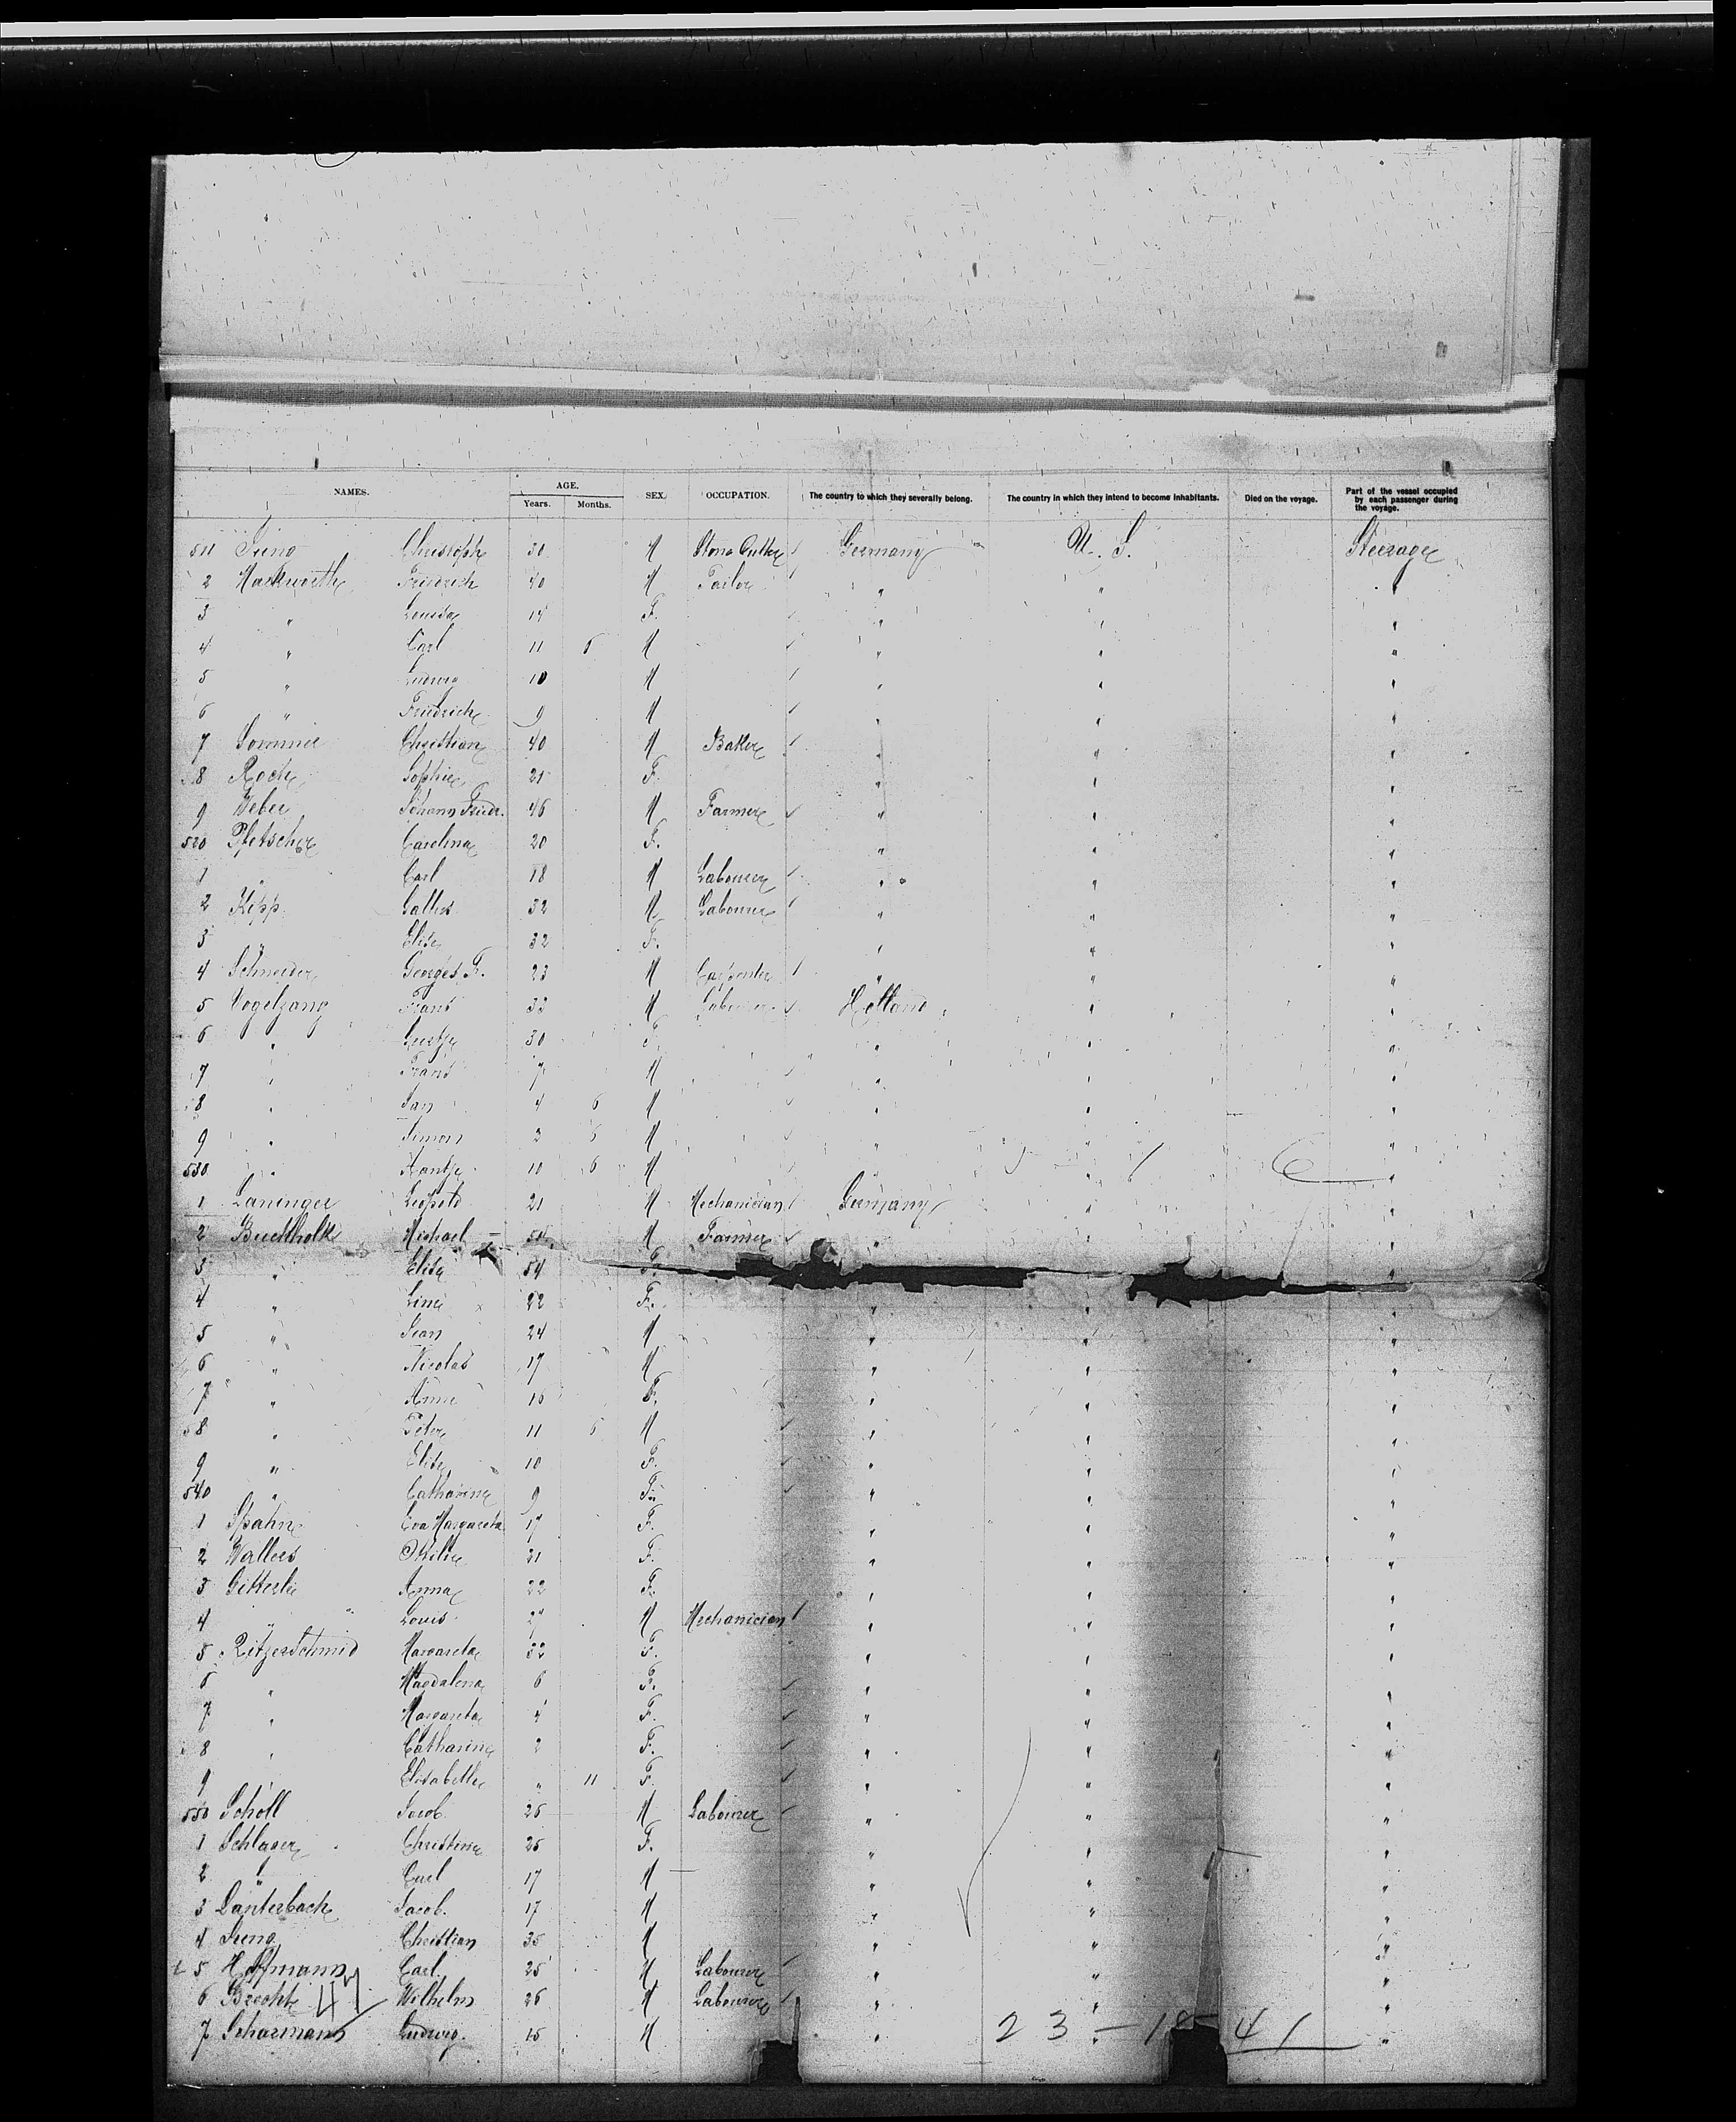 NAMES. AGE. SEX. OCCUPATION. The country to which they severally belong. The country in which they intend to become inhabitants. Died on the voyage. Part of the vessel occupied by each passenger during the voyage.
Years. Months.
511 Christoph 30 M Stone Cutter Germany U. S. Steerage
2 Friedrich 40 M Tailor " " "
3 " Louisa 14 F. " " "
4 " Carl 11 6 M " " "
5 " Ludwig 10 M " " "
6 " Friedrich 9 M " " "
7 Sommer Christian 40 M Baker " " "
8 Koch Sophie 21 F. " " "
9 Weber Johann Friedr. 46 M Farmer " " "
520 Pletscher Carolina 20 F. " " "
1 " Carl 18 M Labourer " " "
2 Kipp 32 M Labourer " " "
3 " Elise 32 F. " " "
4 Schneider Georges Fr. 23 M Carpenter " " "
5 Vogelzang Frans 33 M Labourer Holland " "
6 " 30 F. " " "
7 " Frans 7 M " " "
8 " Jan 4 6 M " " "
9 " Simon 2 6 M " " "
530 " Aantje 10 6 M " " "
1 Laninger Leopold 21 M Mechanician Germany " "
2 Buchholk Michael M Farmer " " "
3 " Elise 54 F. "
4 " Line 22 F. " " "
5 " Jean 24 M " " "
6 " Nicolas 17 M " " "
7 " Anna 16 F. " " "
8 " Peter 11 6 M " " "
9 " Elise 10 F. " " "
540 " Catharina 9 F. " " "
1 Spahn Eva Margareta 17 F. " " "
2 Walters Ottilie 21 F. " " "
3 Gitterle Anna 22 F. " " "
4 " Louis 27 M Mechanician " " "
5 Ritzerschmid Margareta 32 F. " " "
6 " Magdalena 6 F. " " "
7 " Margareta 4 F. " " "
8 " Catharina 2 F. " " "
9 Elisabethe " 11 F. " " "
550 Scholl Jacob 26 M Labourer " " "
1 Schlager Christina 25 F. " " "
2 " Carl 17 M " " "
3 Danterbach Jacob. 17 M " " "
4 Jung Christian 35 M " " "
5 Hoffmann Carl 25 M Labourer " " "
6 Brecht Wilhelm 26 M Labourer " " "
7 Scharmann Ludwig. 15 M " 23 - 18 - 41 "